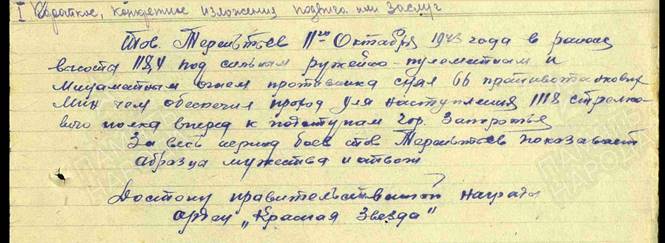 I Краткое, конкретное изложение подвига или заслуг
Тов. Терентьев 11го Октября 1943 года в районе
высоты 118,4 под сильным ружейно-пулеметным и
минаметным огнем противника снял 66 противотанковых
мин чем обеспечил проход для наступления 1118 стрелко-
вого полка вперед к подступам гор. Запорожья
За весь период боев тов Терентьев показывает
образца мужества и отваги
Достоин правительственной награды
орден „Красная Звезда"
ПАМЯТЬ НАРОДА